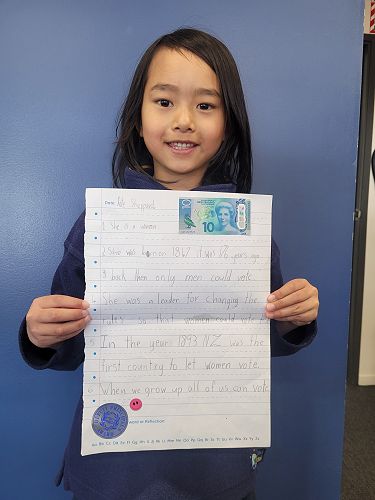 Date: Kate Sheppard
10
1 She is a women
2 She was born on 1847 it was 176 years ago.
3 back then only men could vote.
4 She was a leader for changing the
rules so that women could vote
5 In the year 1893 NZ was the
first country to let women vote.
6 When we grow up all of us can vote
Word or Reflection:
Aa Bb Cc Dd Ee Ff Gg Hh Ii Jj Kk Ll Mm Nn Oo Pp Qq Rr Ss Tt Uu Vv Ww Xx Yy Zz